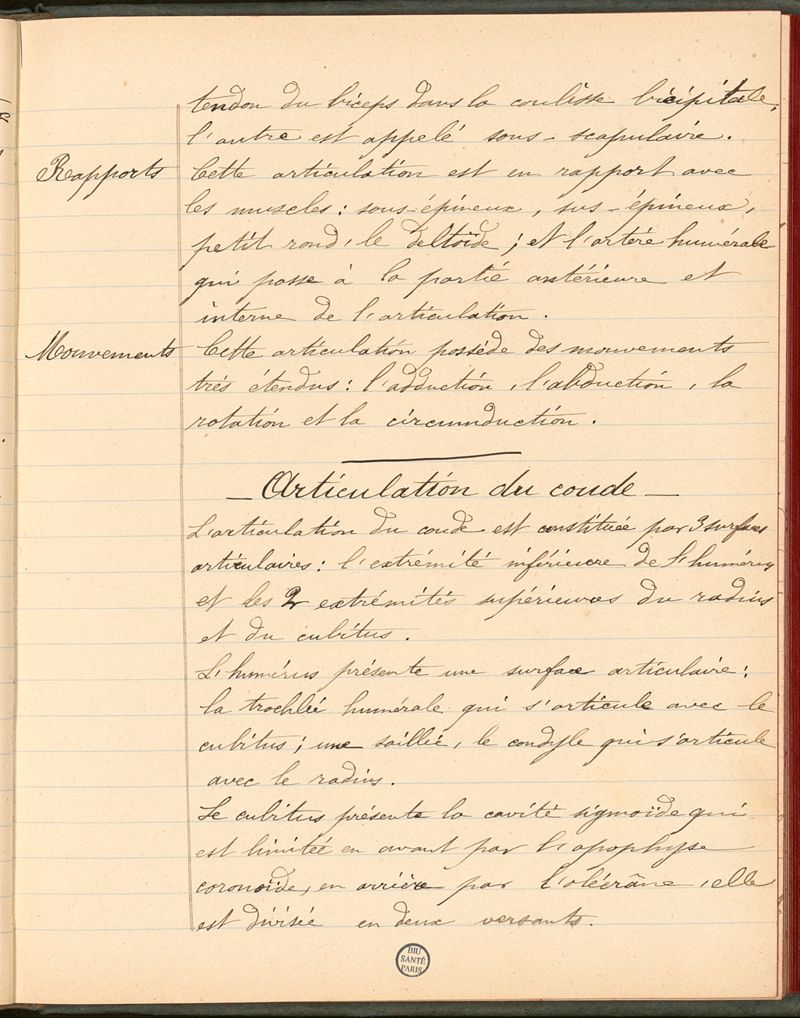 tendon du biceps dans la coulisse bicipitale,
l'autre est appelé sous-scapulaire.
Rapports Cette articulation est en rapport avec
les muscles : sous-épineux, sus-épineux,
petit rond, le deltoïde ; et l'artère humérale
qui passe à la partie antérieure et
interne de l'articulation.
Mouvements Cette articulation possède des mouvements
très étendus : l'adduction, l'abduction, la
rotation et la circumduction.
— Articulation du coude —
L'articulation du coude est constituée par 3 surfaces
articulaires : l'extrémité inférieure de l'humérus
et les 2 extrémités supérieures du radius
et du cubitus.
L'humérus présente une surface articulaire :
la trochlée humérale qui s'articule avec le
cubitus ; une saillie, le condyle qui s'articule
avec le radius.
Le cubitus présente la cavité sigmoïde qui
est limitée en avant par l'apophyse
coronoïde, en arrière par l'olécrâne, elle
est divisée en deux versants.
BIU
SANTÉ
PARIS